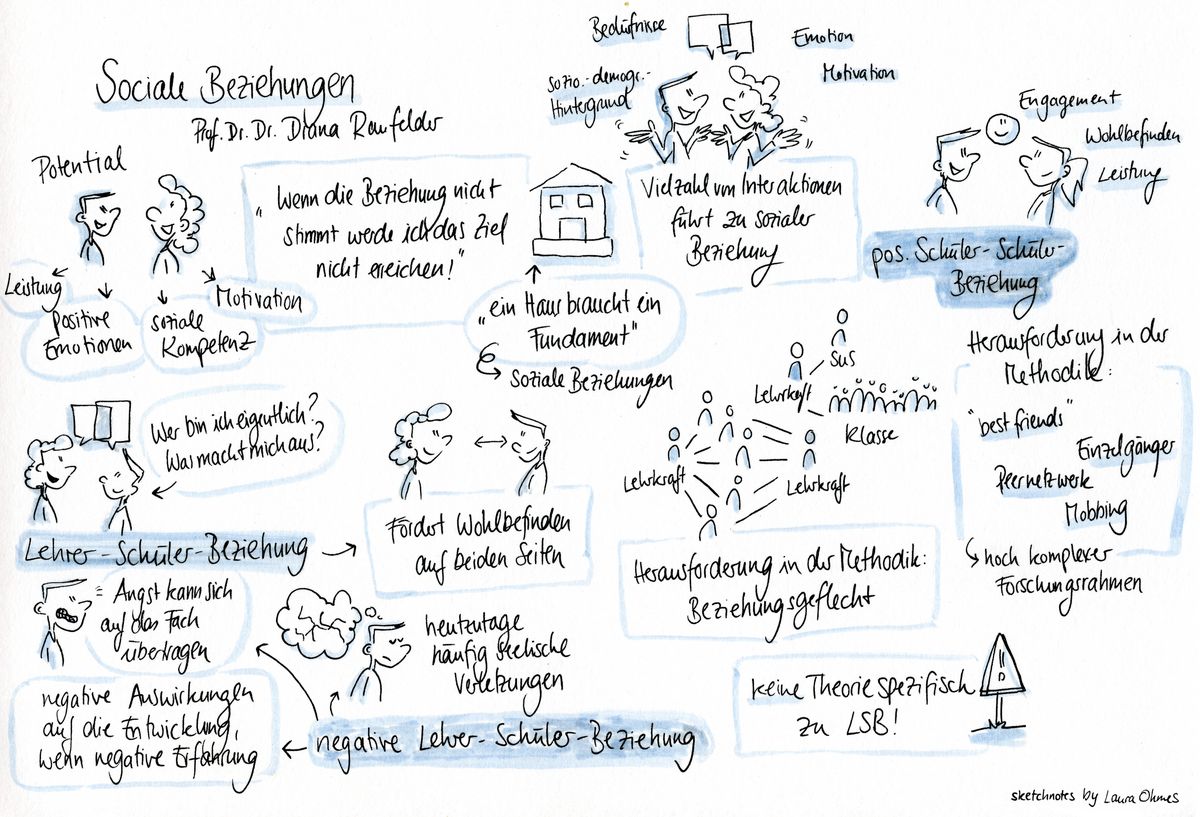 Sociale Beziehungen
Prof. Dr. Dr. Diana Raufelder
Potential
Leistung
Positive
Emotionen
soziale
Kompetenz
Motivation
"Wenn die Beziehung nicht
stimmt werde ich das Ziel
nicht erreichen!"
"ein Haus braucht ein
Fundament"
Soziale Beziehungen
Bedürfnisse
Sozio.-demogr.-
Hintergrund
Emotion
Motivation
Vielzahl von Interaktionen
führt zu sozialer
Beziehung
Engagement
Wohlbefinden
Leistung
pos. Schüler-Schüler-
Beziehung
Herausforderung in der
Methodik:
"best friends"
Einzelgänger
Peernetzwerk
Mobbing
noch komplexer
Forschungsrahmen
Wer bin ich eigentlich?
Was macht mich aus?
Lehrer-Schüler-Beziehung
Fördert Wohlbefinden
auf beiden Seiten
SuS
Lehrkraft
Klasse
Lehrkraft
Lehrkraft
Herausforderung in der Methodik:
Beziehungsgeflecht
Angst kann sich
auf das Fach
übertragen
heutzutage
häufig seelische
Verletzungen
negative Auswirkungen
auf die Entwicklung,
wenn negative Erfahrung
negative Lehrer-Schüler-Beziehung
keine Theorie spezifisch
zu LSB!
sketchnotes by Laura Ohmes